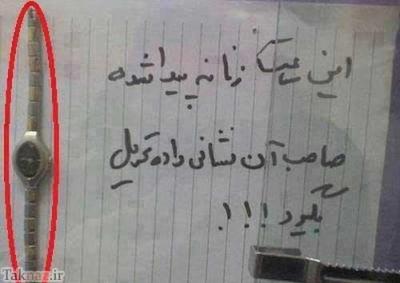 این ساعت زنانه پیدا شده
صاحب آن نشانی داده تحویل
بگیرد!!!
Taknaz.ir